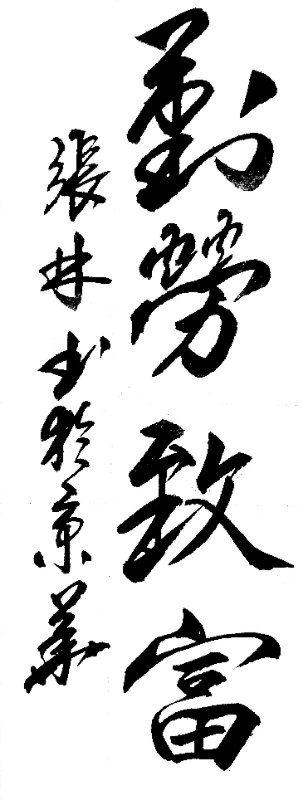 勤勞致富
張林书於京華